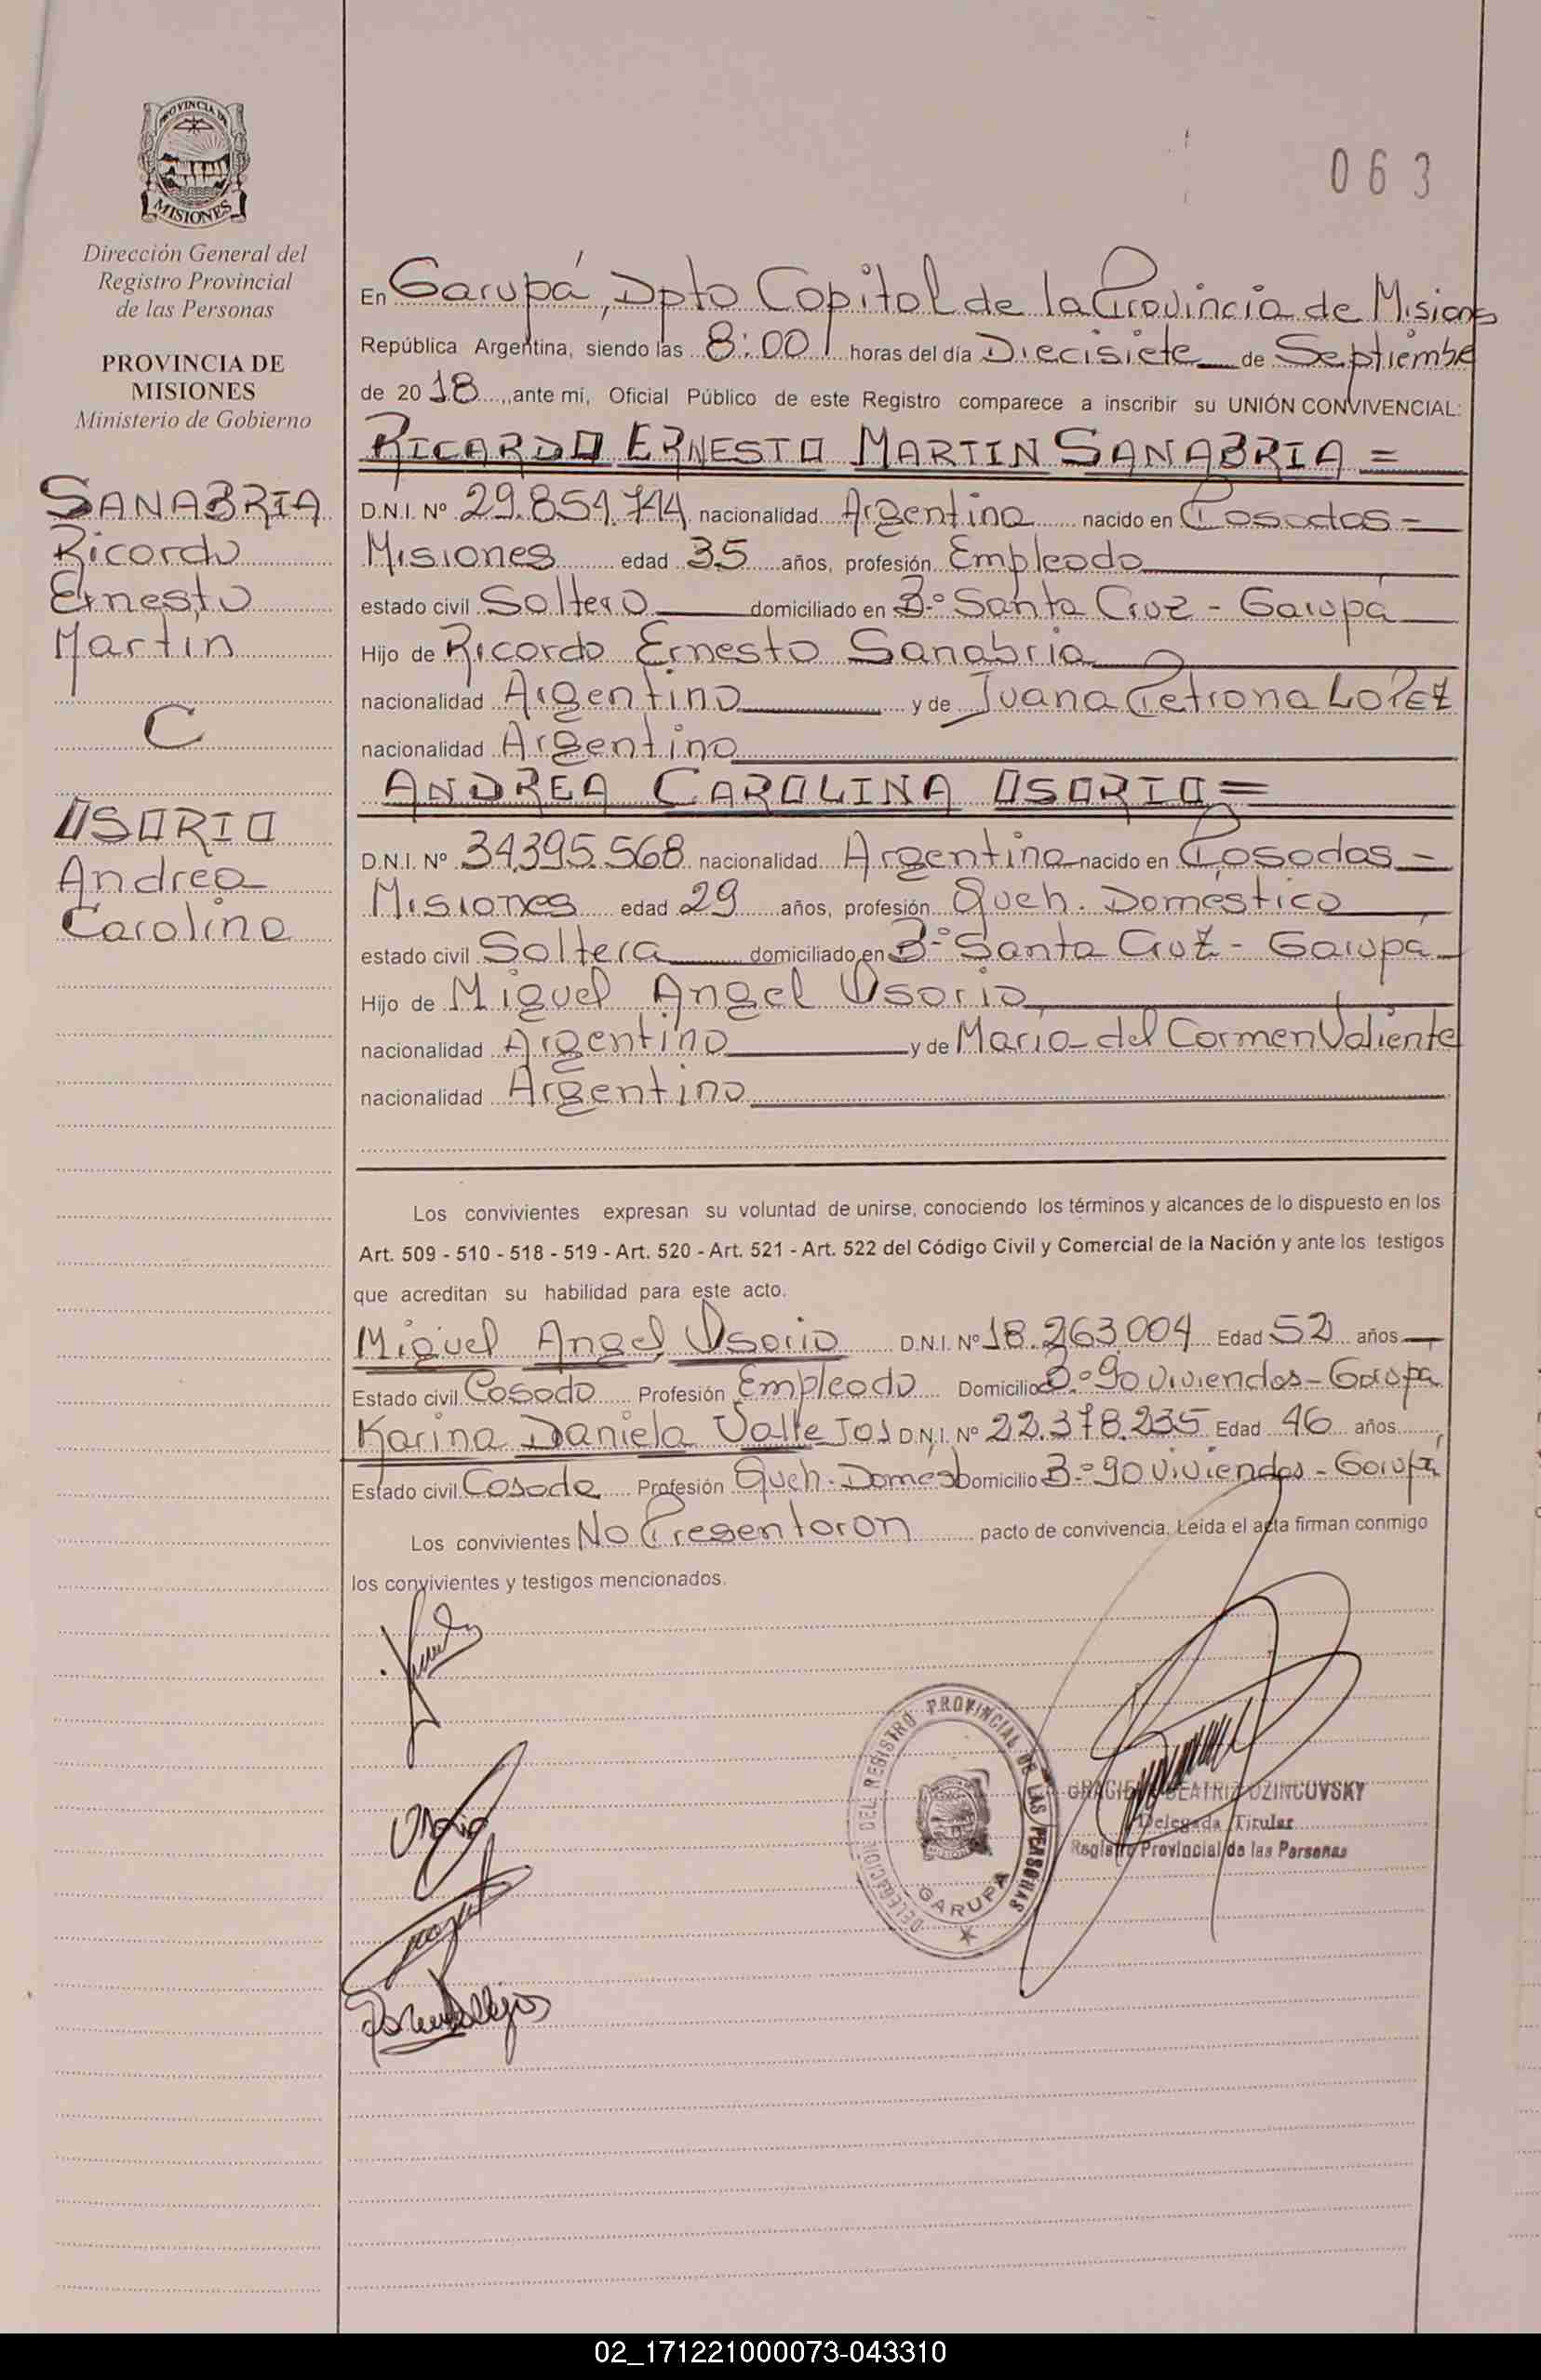 PROVINCIA DE
MISIONES
Dirección General del
Registro Provincial
de las Personas
PROVINCIA DE
MISIONES
Ministerio de Gobierno
SANABRIA
Ricardo
Ernesto
Martin
C
OSORIO
Andrea
Carolina
063
En Garupá, Dpto Capital de la Provincia de Misiones
República Argentina, siendo las 8:00 horas del día Diecisiete de Septiembre
de 2018, ante mi, Oficial Público de este Registro comparece a inscribir su UNIÓN CONVIVENCIAL:
RICARDO ERNESTO MARTIN SANABRIA =
D.N.I. Nº 29.851.744 nacionalidad Argentina nacido en Posadas =
Misiones edad 35 años, profesión Empleado
estado civil Soltero domiciliado en Bº Santa Cruz - Garupá
Hijo de Ricardo Ernesto Sanabria
nacionalidad Argentino y de Juana Petrona LOPEZ
nacionalidad Argentina
ANDREA CAROLINA OSORIO =
D.N.I. Nº 34.395.568 nacionalidad Argentina nacido en Posadas =
Misiones edad 29 años, profesión Queh. Doméstico
estado civil Soltera domiciliado en Bº Santa Cruz - Garupá
Hijo de Miguel Angel Osorio
nacionalidad Argentino y de María del Carmen Valiente
nacionalidad Argentina
Los convivientes expresan su voluntad de unirse, conociendo los términos y alcances de lo dispuesto en los
Art. 509 - 510 - 518 - 519 - Art. 520 - Art. 521 - Art. 522 del Código Civil y Comercial de la Nación y ante los testigos
que acreditan su habilidad para este acto.
Miguel Angel Osorio D.N.I. Nº 18.263.004 Edad 52 años
Estado civil Casado Profesión Empleado Domicilio Bº 90 viviendas - Garupá
Karina Daniela Vallejos D.N.I. Nº 22.378.235 Edad 46 años
Estado civil Casada Profesión Queh. Domés Domicilio Bº 90 viviendas - Garupá
Los convivientes No Presentaron pacto de convivencia. Leída el acta firman conmigo
los convivientes y testigos mencionados.
DELEGACION DEL REGISTRO PROVINCIAL DE LAS PERSONAS
GARUPA
BEATRIZ OZINCOVSKY
Delegada Titular
Registro Provincial de las Personas
02_171221000073-043310